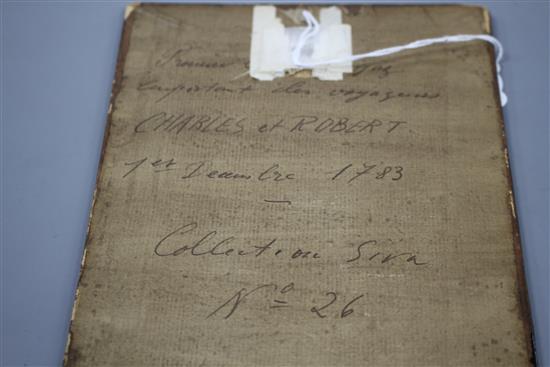 Premier
important des voyageurs
CHARLES et ROBERT
1er Decembre 1783
Collection Sirv
Nº 26